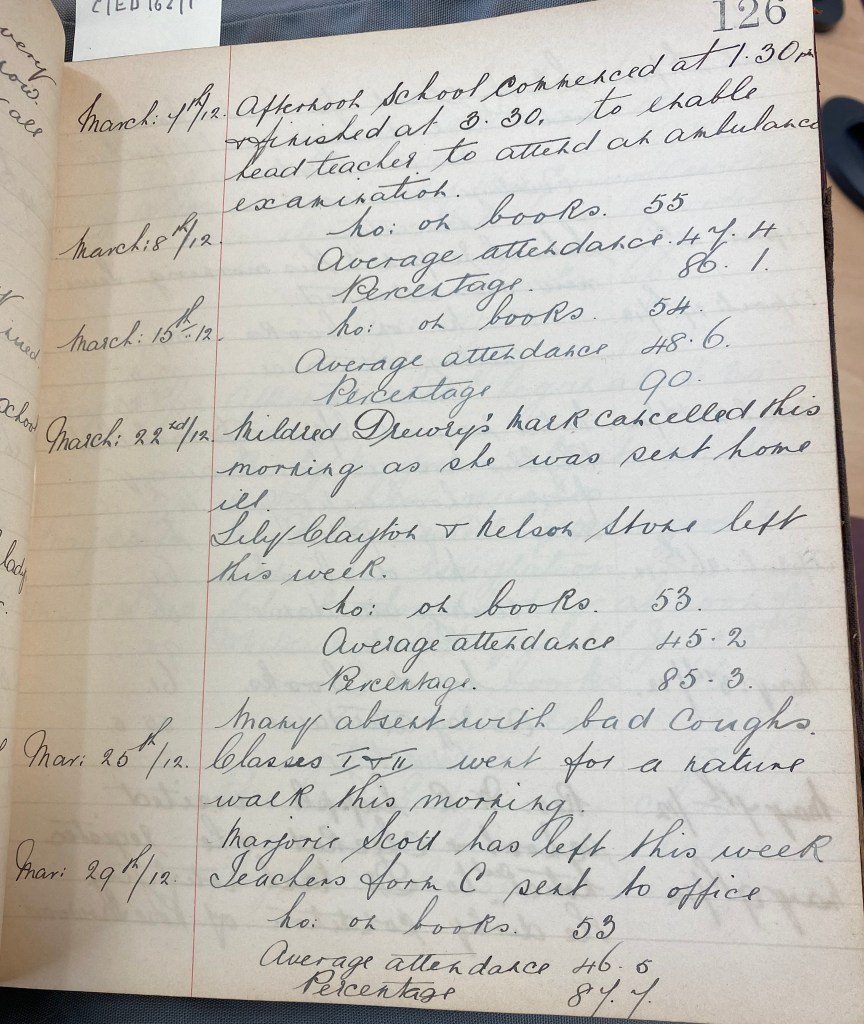 C/ED 162/1
126
very
row.
all
March: 4th/12. Afternoon School commenced at 1.30 pm
& finished at 3.30, to enable
head teacher to attend an ambulance
examination.
March: 8th/12. No: on books. 55
Average attendance. 47.4
Percentage. 86.1.
March: 15th 12. No: on books. 54.
Average attendance 48.6.
Percentage 90.
March: 22nd/12. Mildred Drewry's mark cancelled this
morning as she was sent home
ill.
Lily Clayton & Nelson Stone left
this week.
No: on books. 53.
Average attendance 45.2
Percentage. 85.3.
Many absent with bad coughs.
Mar: 25th/12. Classes I & II went for a nature
walk this morning.
Marjorie Scott has left this week
Mar: 29th/12. Teachers form C sent to office
No: on books. 53
Average attendance 46.5
Percentage 87.7.
school
lady